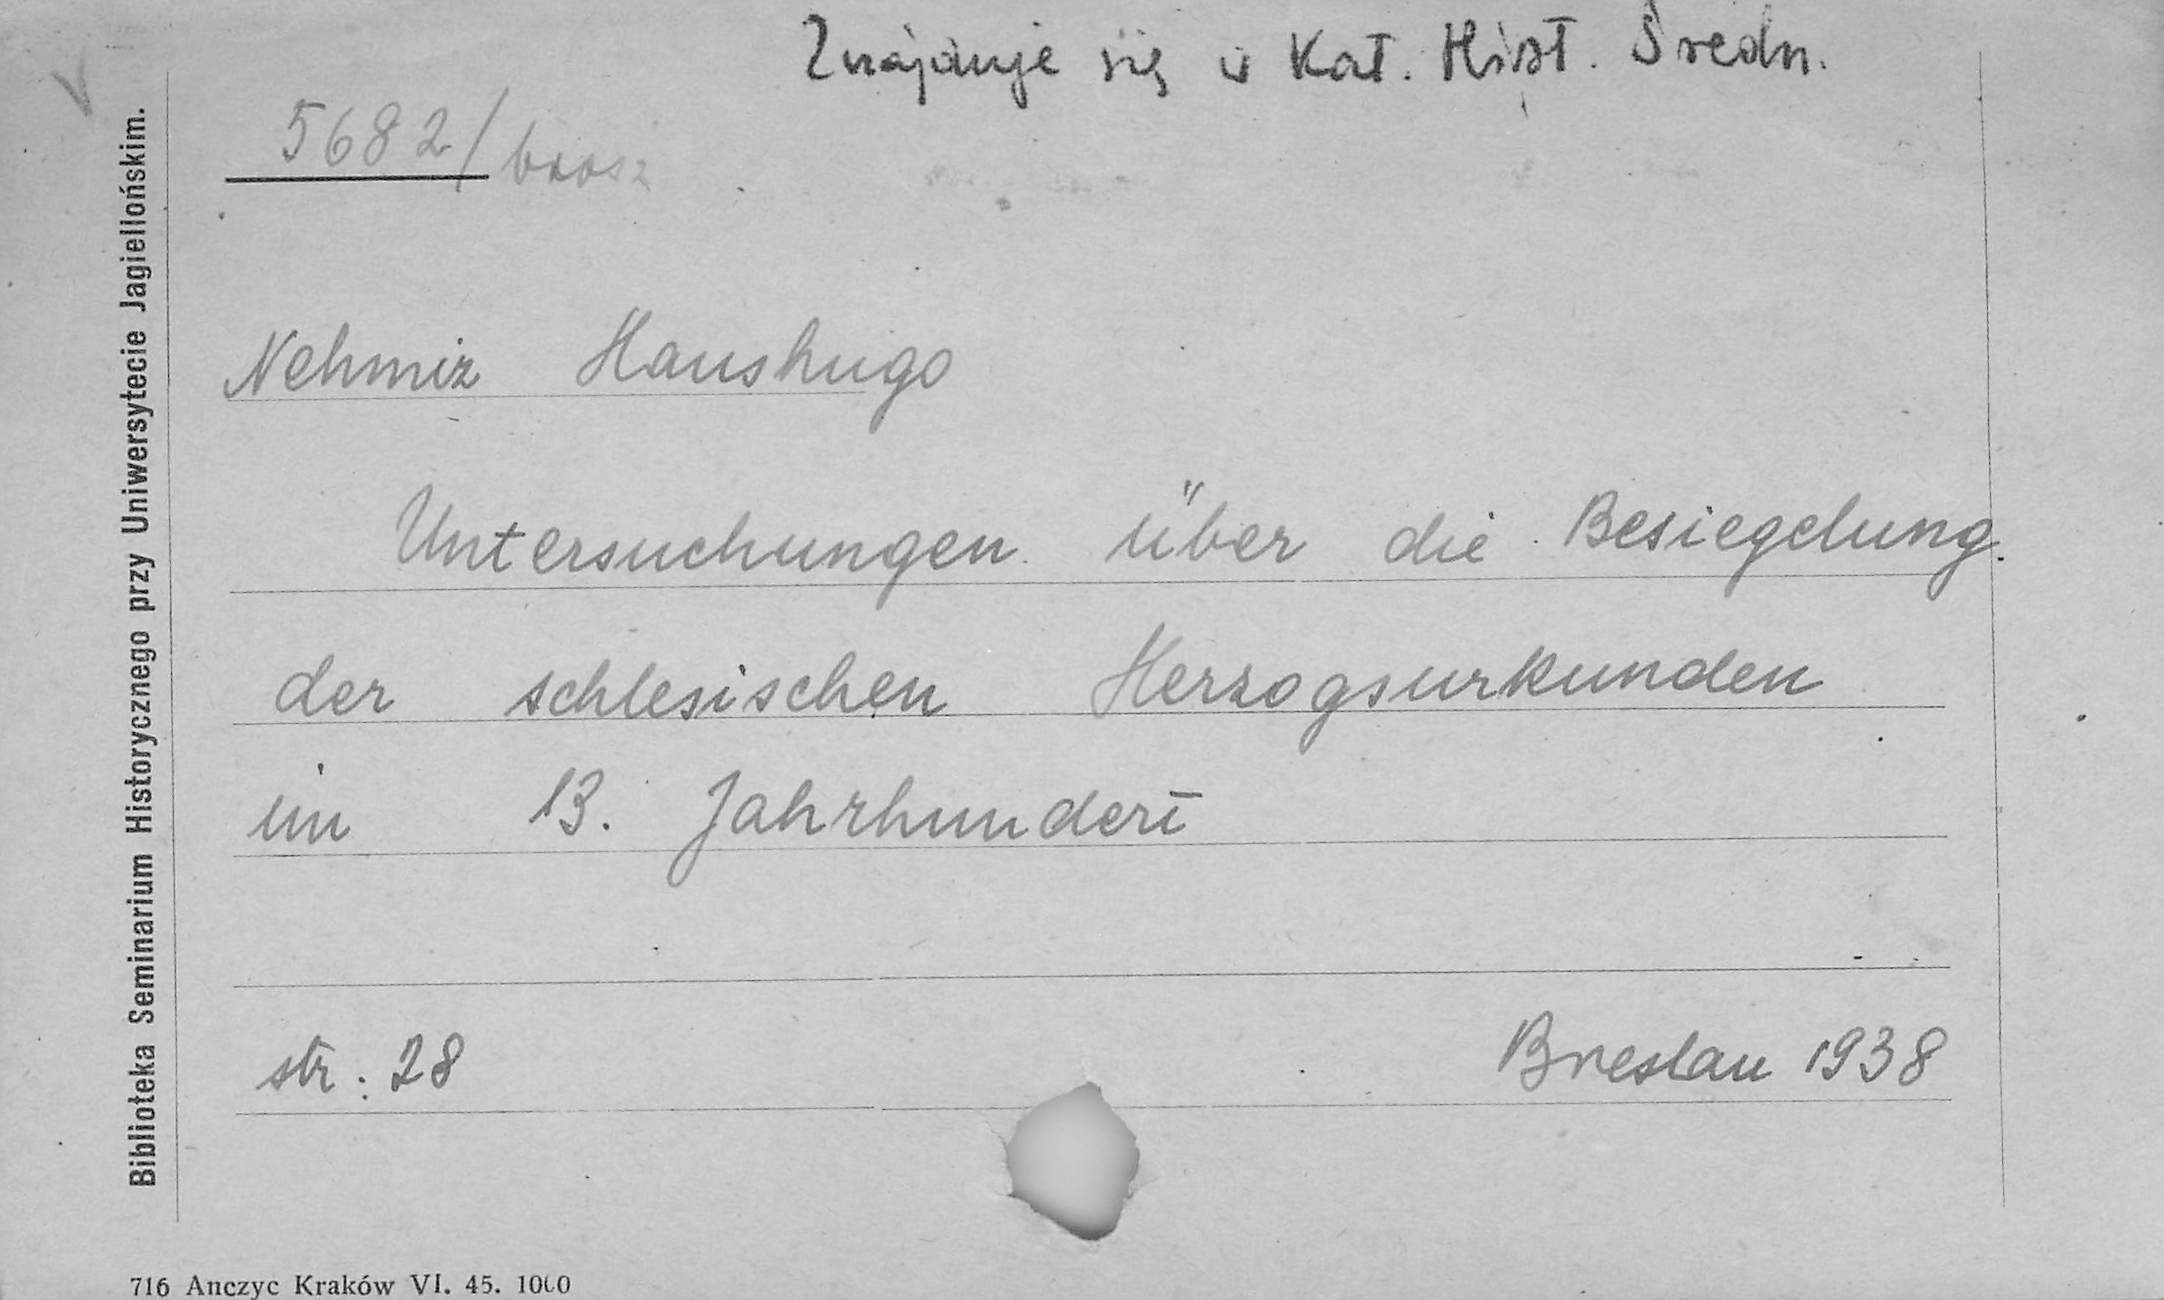 Znajduje się w Kat. Hist. Średn.
5682/brosz
Nehmiz Hanshugo
Untersuchungen über die Besiegelung
der schlesischen Herzogsurkunden
im 13. Jahrhundert
str. 28 Breslau 1938
Biblioteka Seminarium Historycznego przy Uniwersytecie Jagiellońskim.
716 Anczyc Kraków VI. 45. 1000